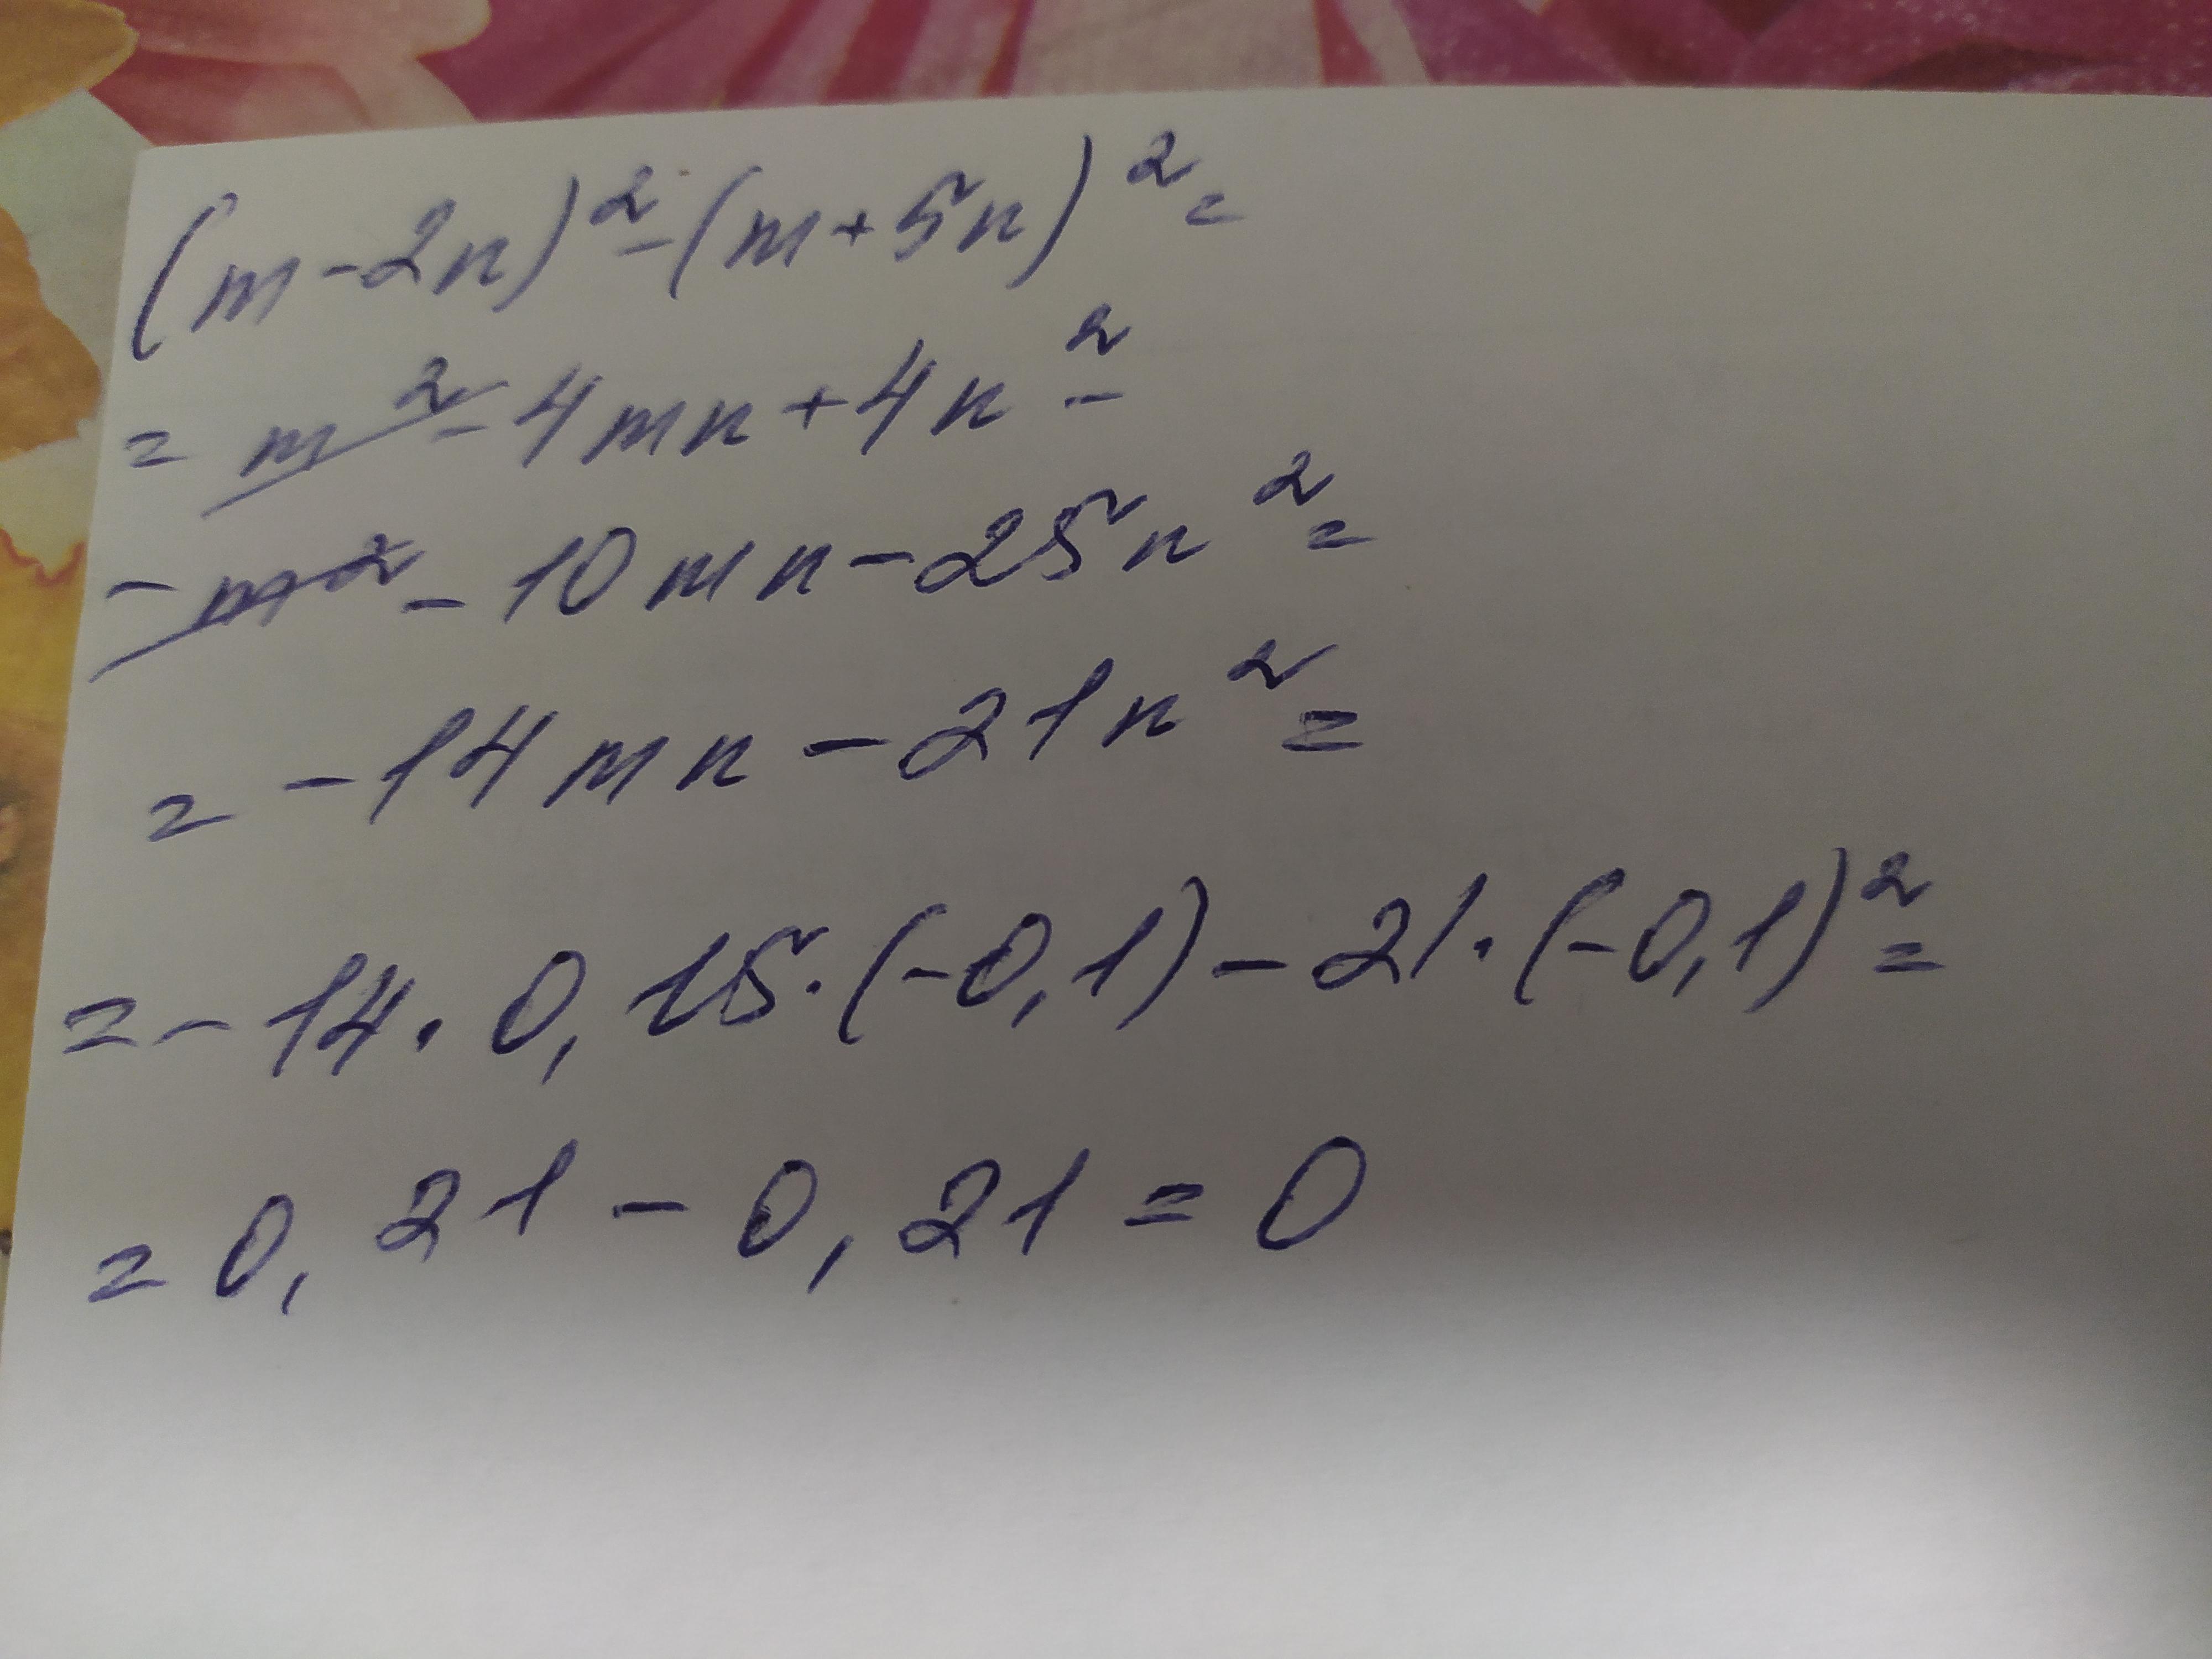 (m-2n)²-(m+5n)²=
= m²-4mn+4n²-
-m²-10mn-25n²=
= -14mn-21n²=
=-14·0,15·(-0,1)-21·(-0,1)²=
=0,21-0,21=0